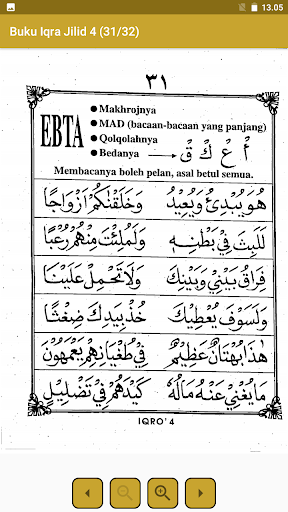 13.05
Buku Iqra Jilid 4 (31/32)
٣١
EBTA
● Makhrojnya
● MAD (bacaan-bacaan yang panjang)
● Qolqolahnya
● Bedanya أْ عْ كْ قْ
Membacanya boleh pelan, asal betul semua.
هُوَ يُبْدِئُ وَيُعِيْدُ وَخَلَقْنَاكُمْ اَزْوَاجًا
لَلَبِثَ فِيْ بَطْنِهِ وَلَمُلِئْتَ مِنْهُمْ رُعْبًا
فِرَاقُ بَيْنِيْ وَبَيْنِكَ وَلَا تَحْمِلْ عَلَيْنَا
وَلَسَوْفَ يُعْطِيْكَ خُذْ بِيَدِكَ ضِغْثًا
هٰذَا بُهْتَانٌ عَظِيْمٌ فِيْ طُغْيَانِهِمْ يَعْمَهُوْنَ
مَا يُغْنِيْ عَنْهُ مَالُهُ كَيْدَهُمْ فِيْ تَضْلِيْلٍ
IQRO' 4